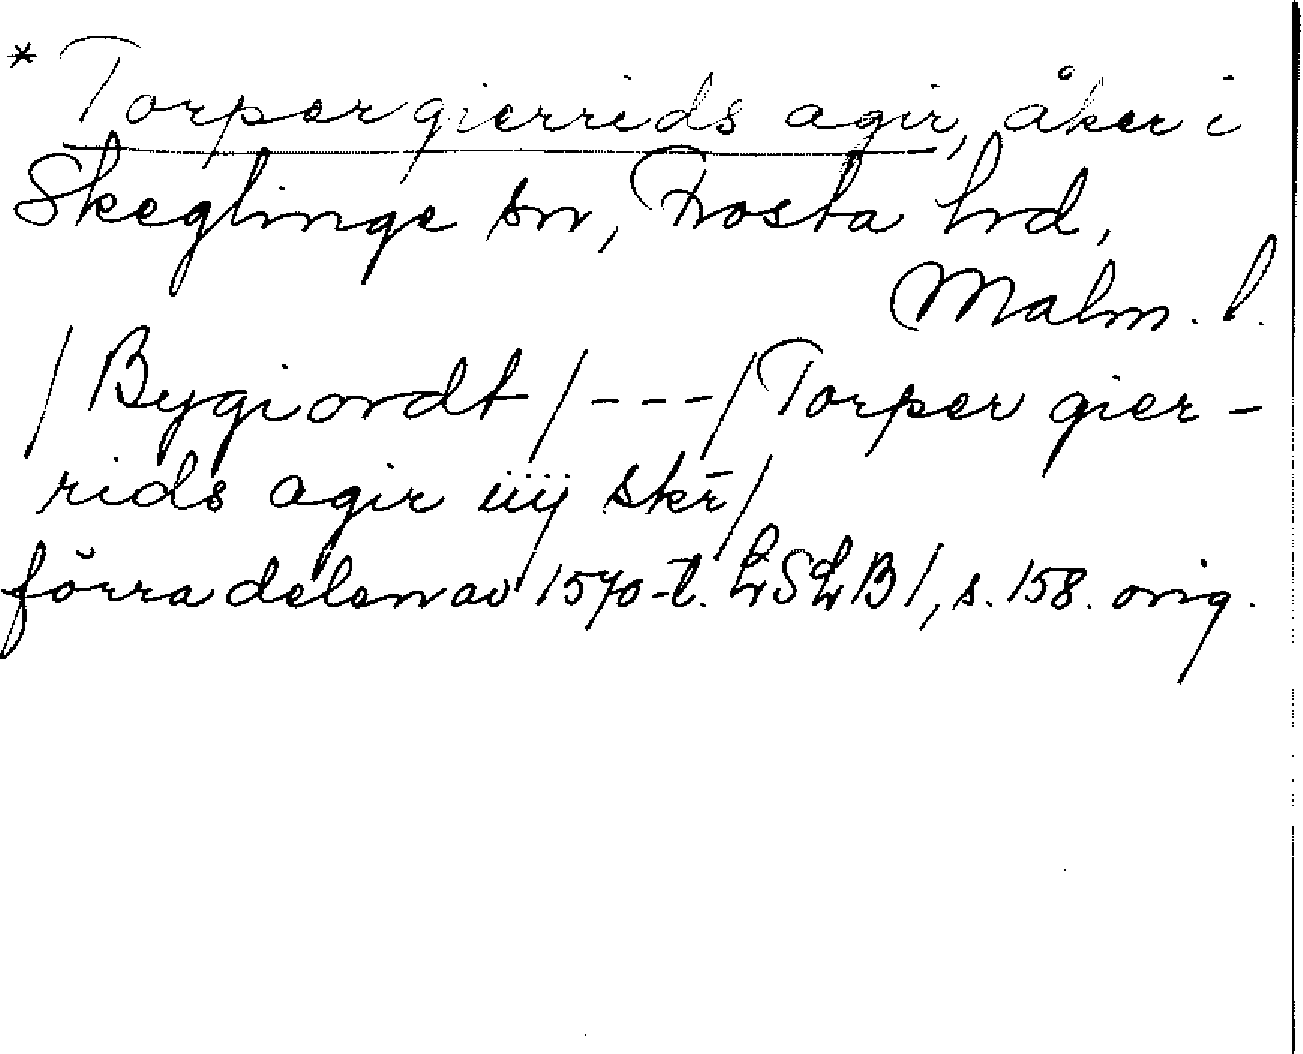 * Torper gierrids agir, åker i
Skeglinge sn, Frosta hrd,
Malm. l.
/Bygiordt/---/Torper gier-
rids agir iiij skr̄/
förra delen av 1570-t. LSLB I, s. 158. orig.